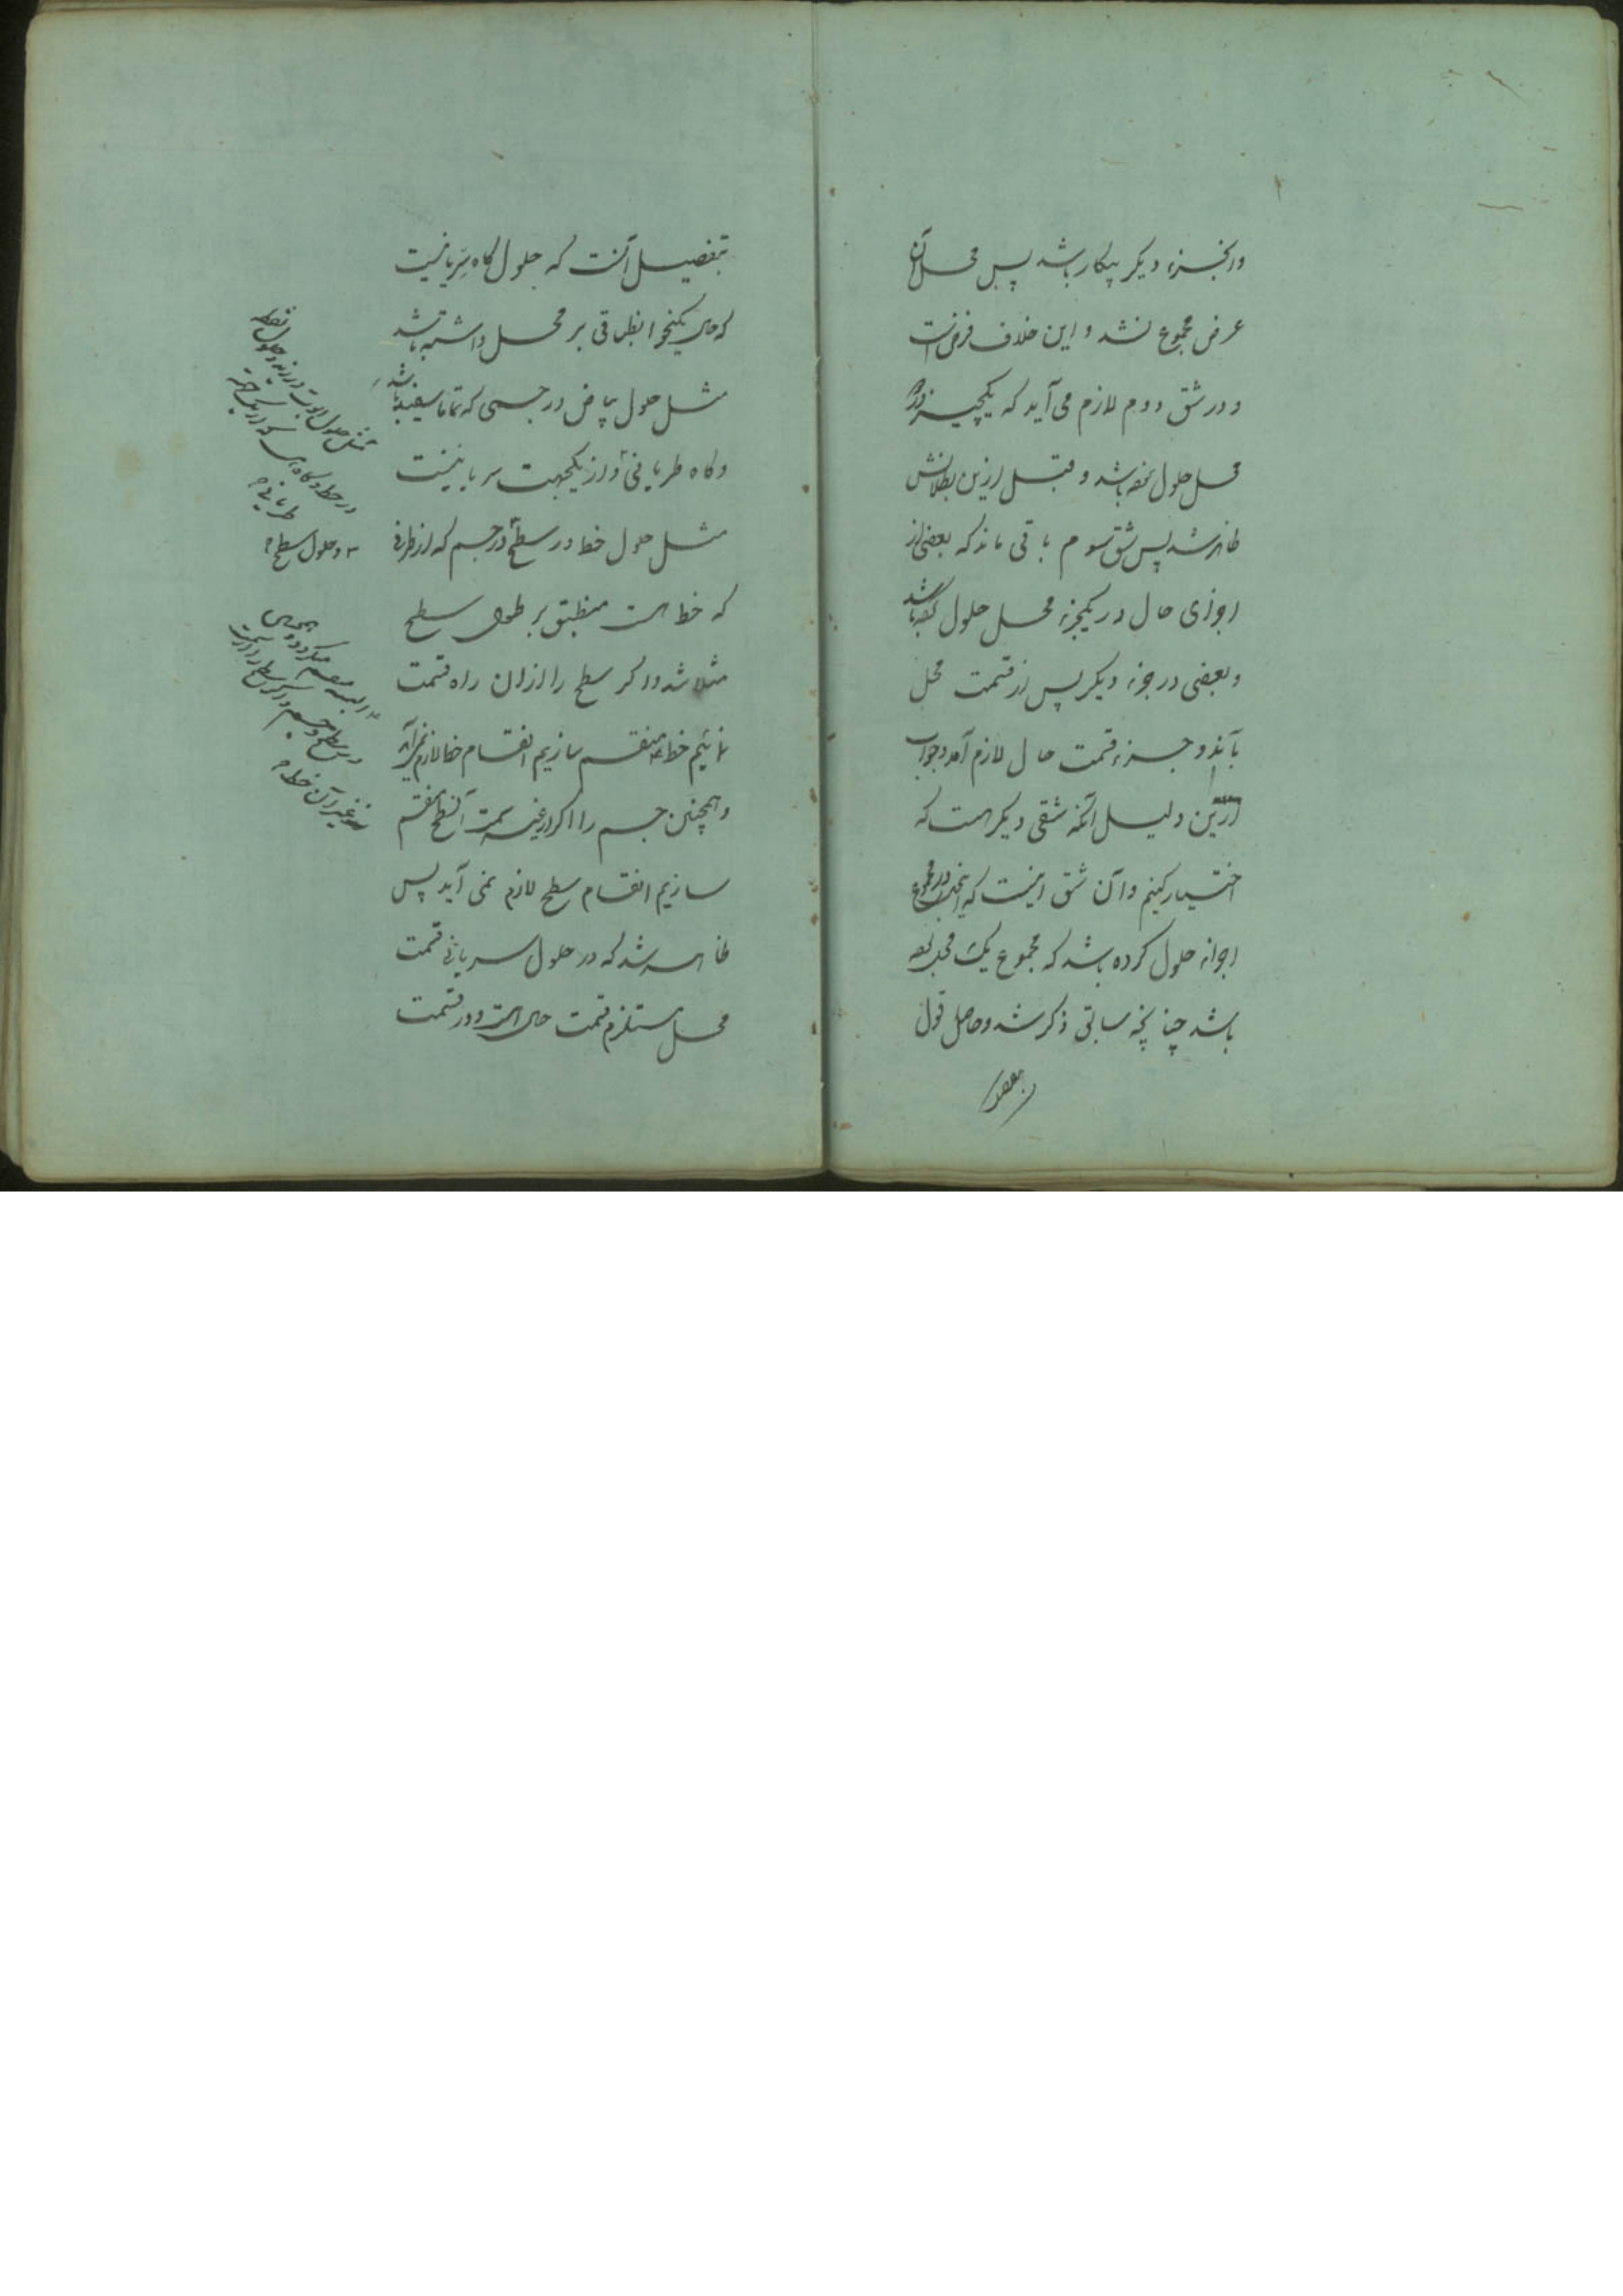 و آنجزء دیگر بیکار باشد پس محل آن
عرض مجموع نشد و این خلاف فرض است
و در شق دوم لازم می آید که یکچیز در دو
محل حلول نموده باشد و قبل ازین بطلانش
ظاهر شد پس شق سوم باقی ماند که بعضی از
اجزای حال در یکجزء محل حلول نموده باشد
و بعضی در جزء دیگر پس از قسمت محل
بآندو جزء قسمت حال لازم آمد و جواب
ازین دلیل آنکه شقی دیگر هست که
اختیار کنیم و آن شق اینست که در مجموع
اجزاء حلول کرده باشد که مجموع یک محل
باشد چنانچه سابق ذکر شد و حاصل قول
بتفصیل آنست که حلول گاه سریانیست
که حال یکنحو انطباقی بر محل داشته باشد
مثل حلول بیاض در جسمی که تماما سفید باشد
و گاه طریانی و از یکجهت سریانیست
مثل حلول خط در سطح و در جسم که از طرفی
که خط است منطبق بر طول سطح
مثلا شد و اگر سطح را از آن راه قسمت
نمائیم خط منقسم سازیم انقسام خط لازم نمی آید
و همچنین جسم را اگر در غیر سمت آن سطح منقسم
سازیم انقسام سطح لازم نمی آید پس
ظاهر شد که در حلول سریانی قسمت
محل مستلزم قسمت حال است و در قسمت
مثل حلول ابوت در زید و حلول نقطه
در خط و گاه
طریانی
و حلول سطح
در سطح و جسم و اگر سطح را از سمت
غیر آن خط